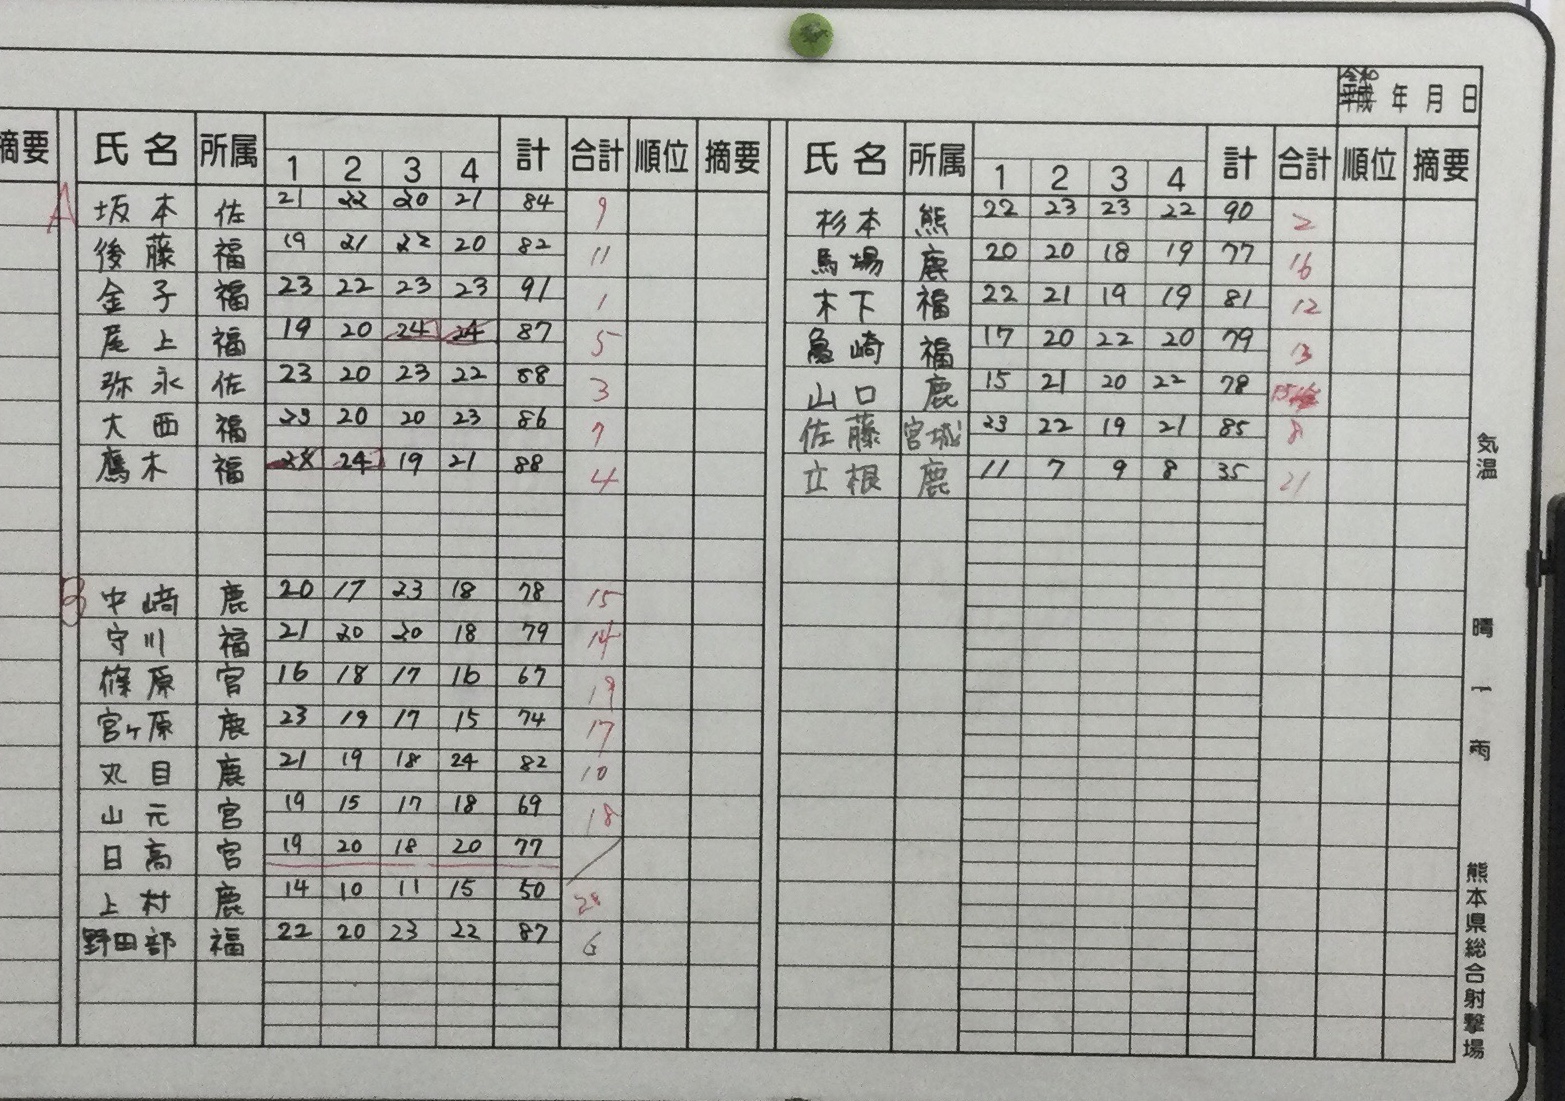 令和 年 月 日
摘要
氏名 所属 1 2 3 4 計 合計 順位 摘要
A 坂本 佐 21 22 20 21 84 9
後藤 福 19 21 22 20 82 11
金子 福 23 22 23 23 91 1
尾上 福 19 20 24 24 87 5
弥永 佐 23 20 23 22 88 3
大西 福 23 20 20 23 86 7
鷹木 福 24 19 21 88 4
B 中崎 鹿 20 17 23 18 78 15
守川 福 21 20 20 18 79 14
篠原 宮 16 18 17 16 67 19
宮ヶ原 鹿 23 19 17 15 74 17
丸目 鹿 21 19 18 24 82 10
山元 宮 19 15 17 18 69 18
日高 宮 19 20 18 20 77
上村 鹿 14 10 11 15 50
野田部 福 22 20 23 22 87 6
氏名 所属 1 2 3 4 計 合計 順位 摘要
杉本 熊 22 23 23 22 90 2
馬場 鹿 20 20 18 19 77 16
木下 福 22 21 19 19 81 12
亀崎 福 17 20 22 20 79 13
山口 鹿 15 21 20 22 78 15
佐藤 宮城 23 22 19 21 85 8
立根 鹿 11 7 9 8 35 21
気温
晴
雨
熊本県総合射撃場